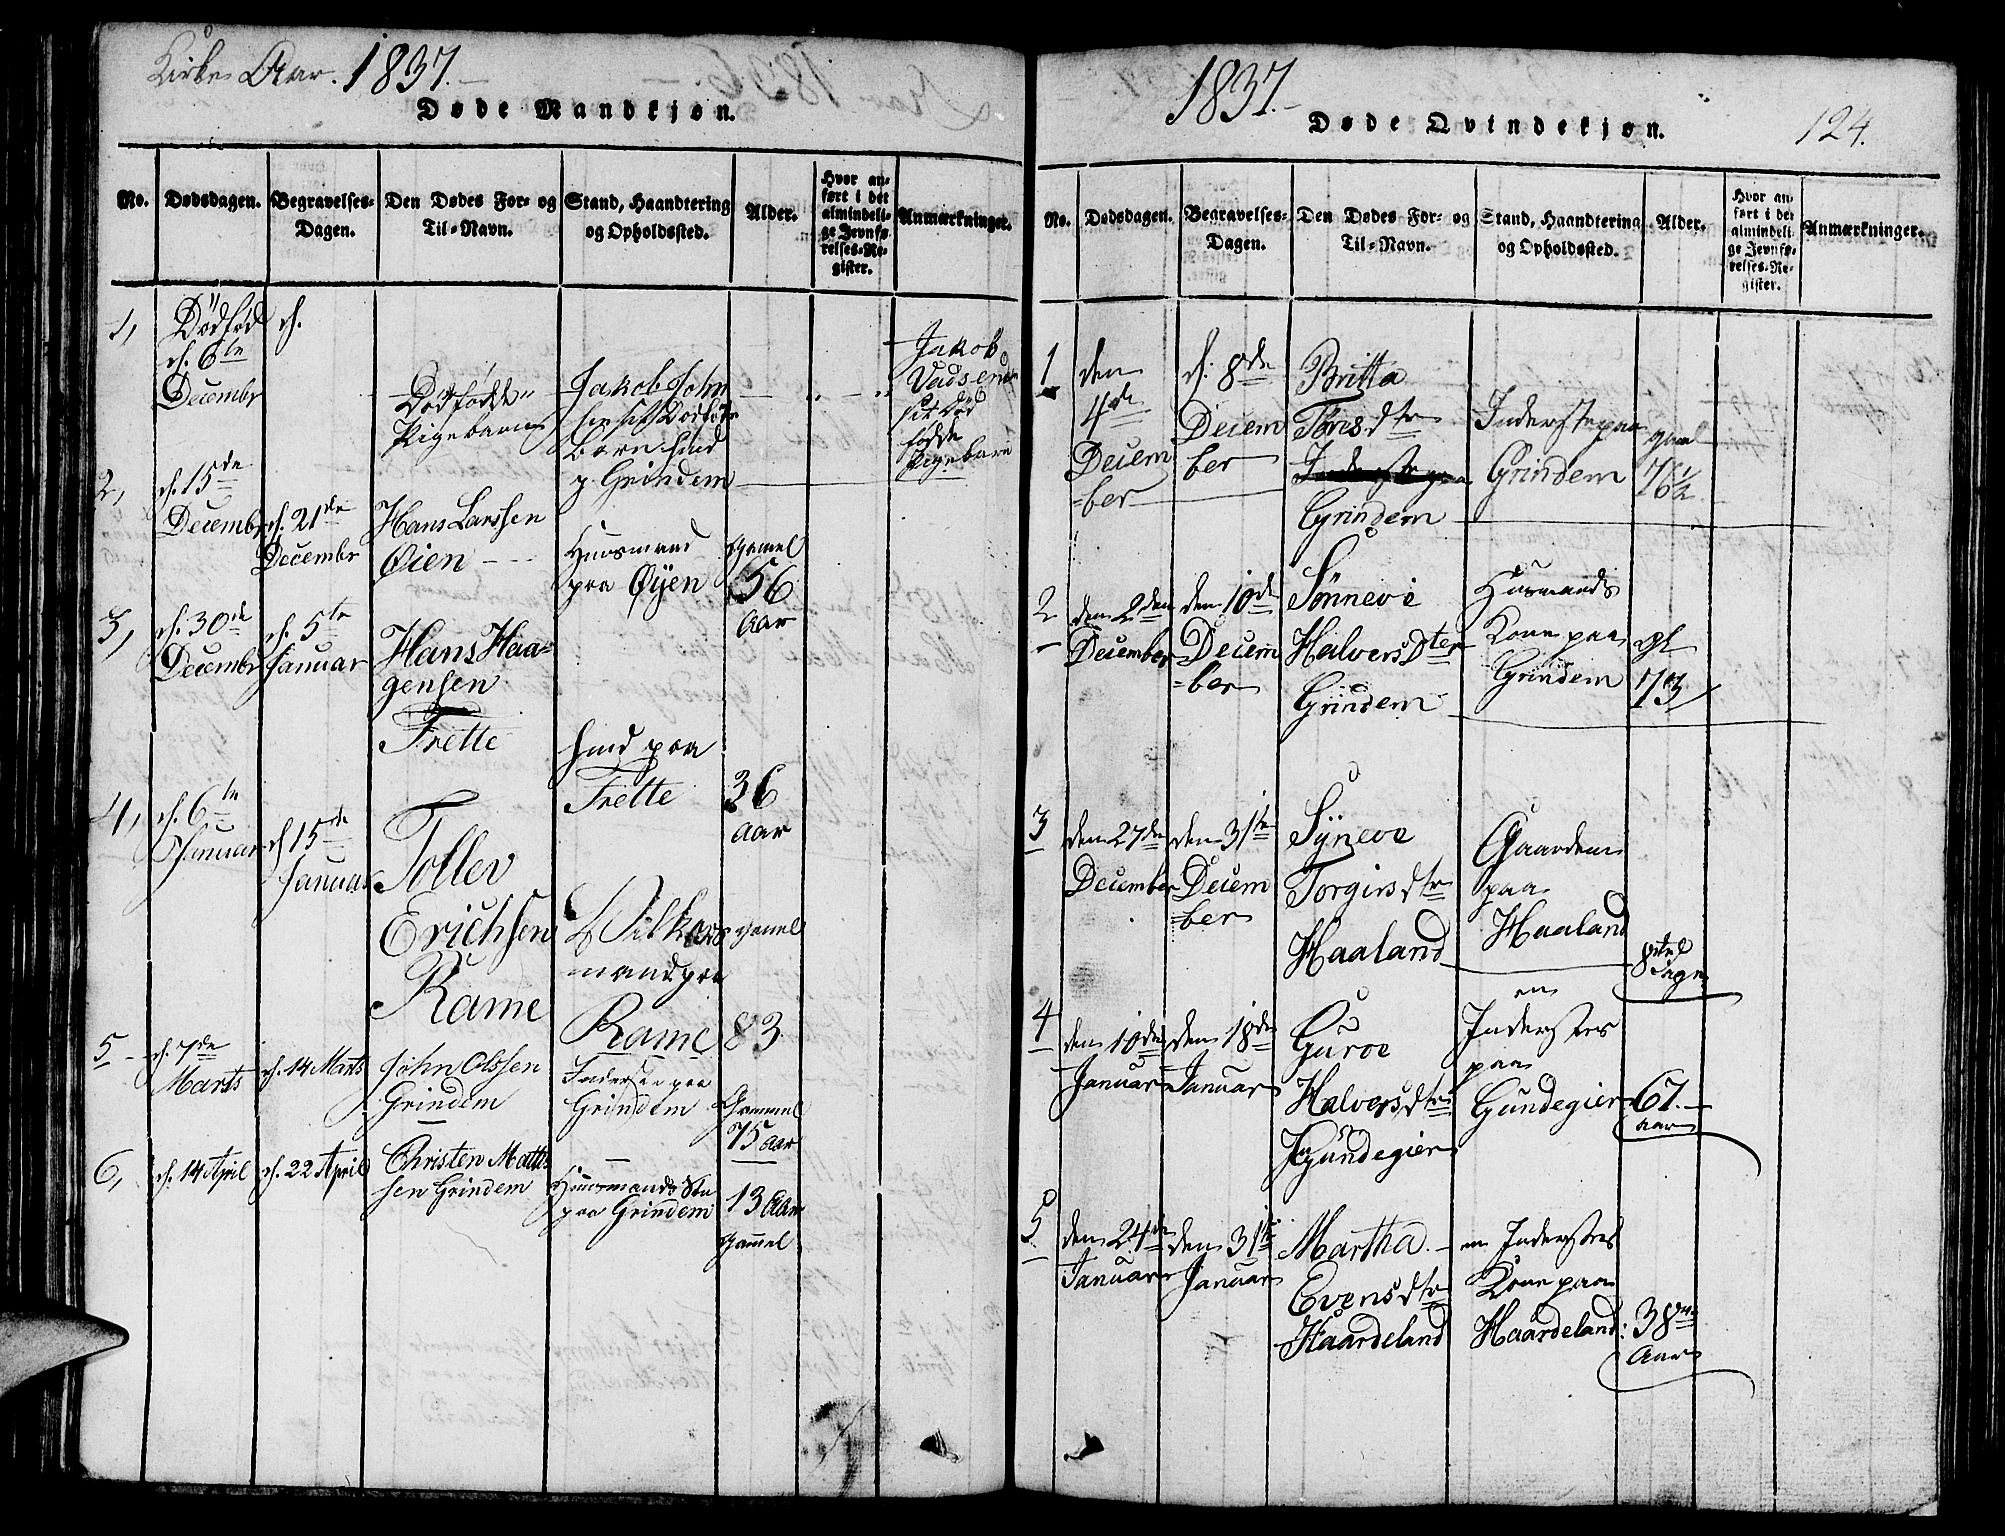 Kirke Aar. 1837.
Døde Mandkjøn.
No.
Dødsdagen.
Begravelses-
Dagen.
Den Dødes For- og
Til-Navn.
Stand, Haandtering
og Opholdssted.
Alder.
Hvor an-
ført i det
almindeli-
ge Jevnfø-
relses-Re-
gister.
Anmærkninger.
1,
Dødfød
d. 6te
December
d.
Dødfødde
Pigebarn
Jakob John
p. Grindem
Jakob
sit Død
fødde
Pigebarn
2,
d. 15de
December
d. 21de
December
Hans Larssen
Øien
Huusmand
paa Øyen
gamel
56
Aar
3,
d. 30de
December
d. 5te
Januar
Hans Haa=
gensen
Frette
paa
Frette
36
Aar
4,
d. 6te
Januar
d 15de
Januar
Tollev
Erichsen
Rame
Wilkaars
mand paa
Rame
gamel
83
5
d. 7de
Marts
d. 14 Marts
John Olssen
Grindem
Inderste paa
Grindem
Gammel
75 Aar
6,
d. 14 April
d. 22 April
Christen Matth
sen Grindem
Huusmands
paa Grindem
13 Aar
Gammel
1837.
Døde Qvindekjøn.
124.
No.
Dødsdagen.
Begravelses-
Dagen.
Den Dødes For- og
Til-Navn.
Stand, Haandtering
og Opholdssted.
Alder.
Hvor an-
ført i det
almindeli-
ge Jevnfø-
relses-Re-
gister.
Anmærkninger.
1
den
4de
Decem
=ber
d. 8de
Decem
ber
Britta
Tøresdtr
Grindem
Inderste paa
Grindem
gaml
76½
2
den 2den
December
den 10de
Decem
=ber
Sønneve
HalversDter
Grindem
Husmands
Kone paa
Grindem
gl
73
3
den 27de
December
den 31te
Decem
=ber
Syneve
Torgirsdtr
Haaland
Gaarden
paa
Haaland
8
Dage
4
den 10de
Januar
den 18de
Januar
Guroe
Halversdtr
Gundegier
en
Inderstes
paa
Gundegier
67.
aar
5
den 24de
Januar
den 31te
Januar
Martha
Evensdtr
Haardeland
en Inderstes
Kone paa
Haardeland
38
Aar